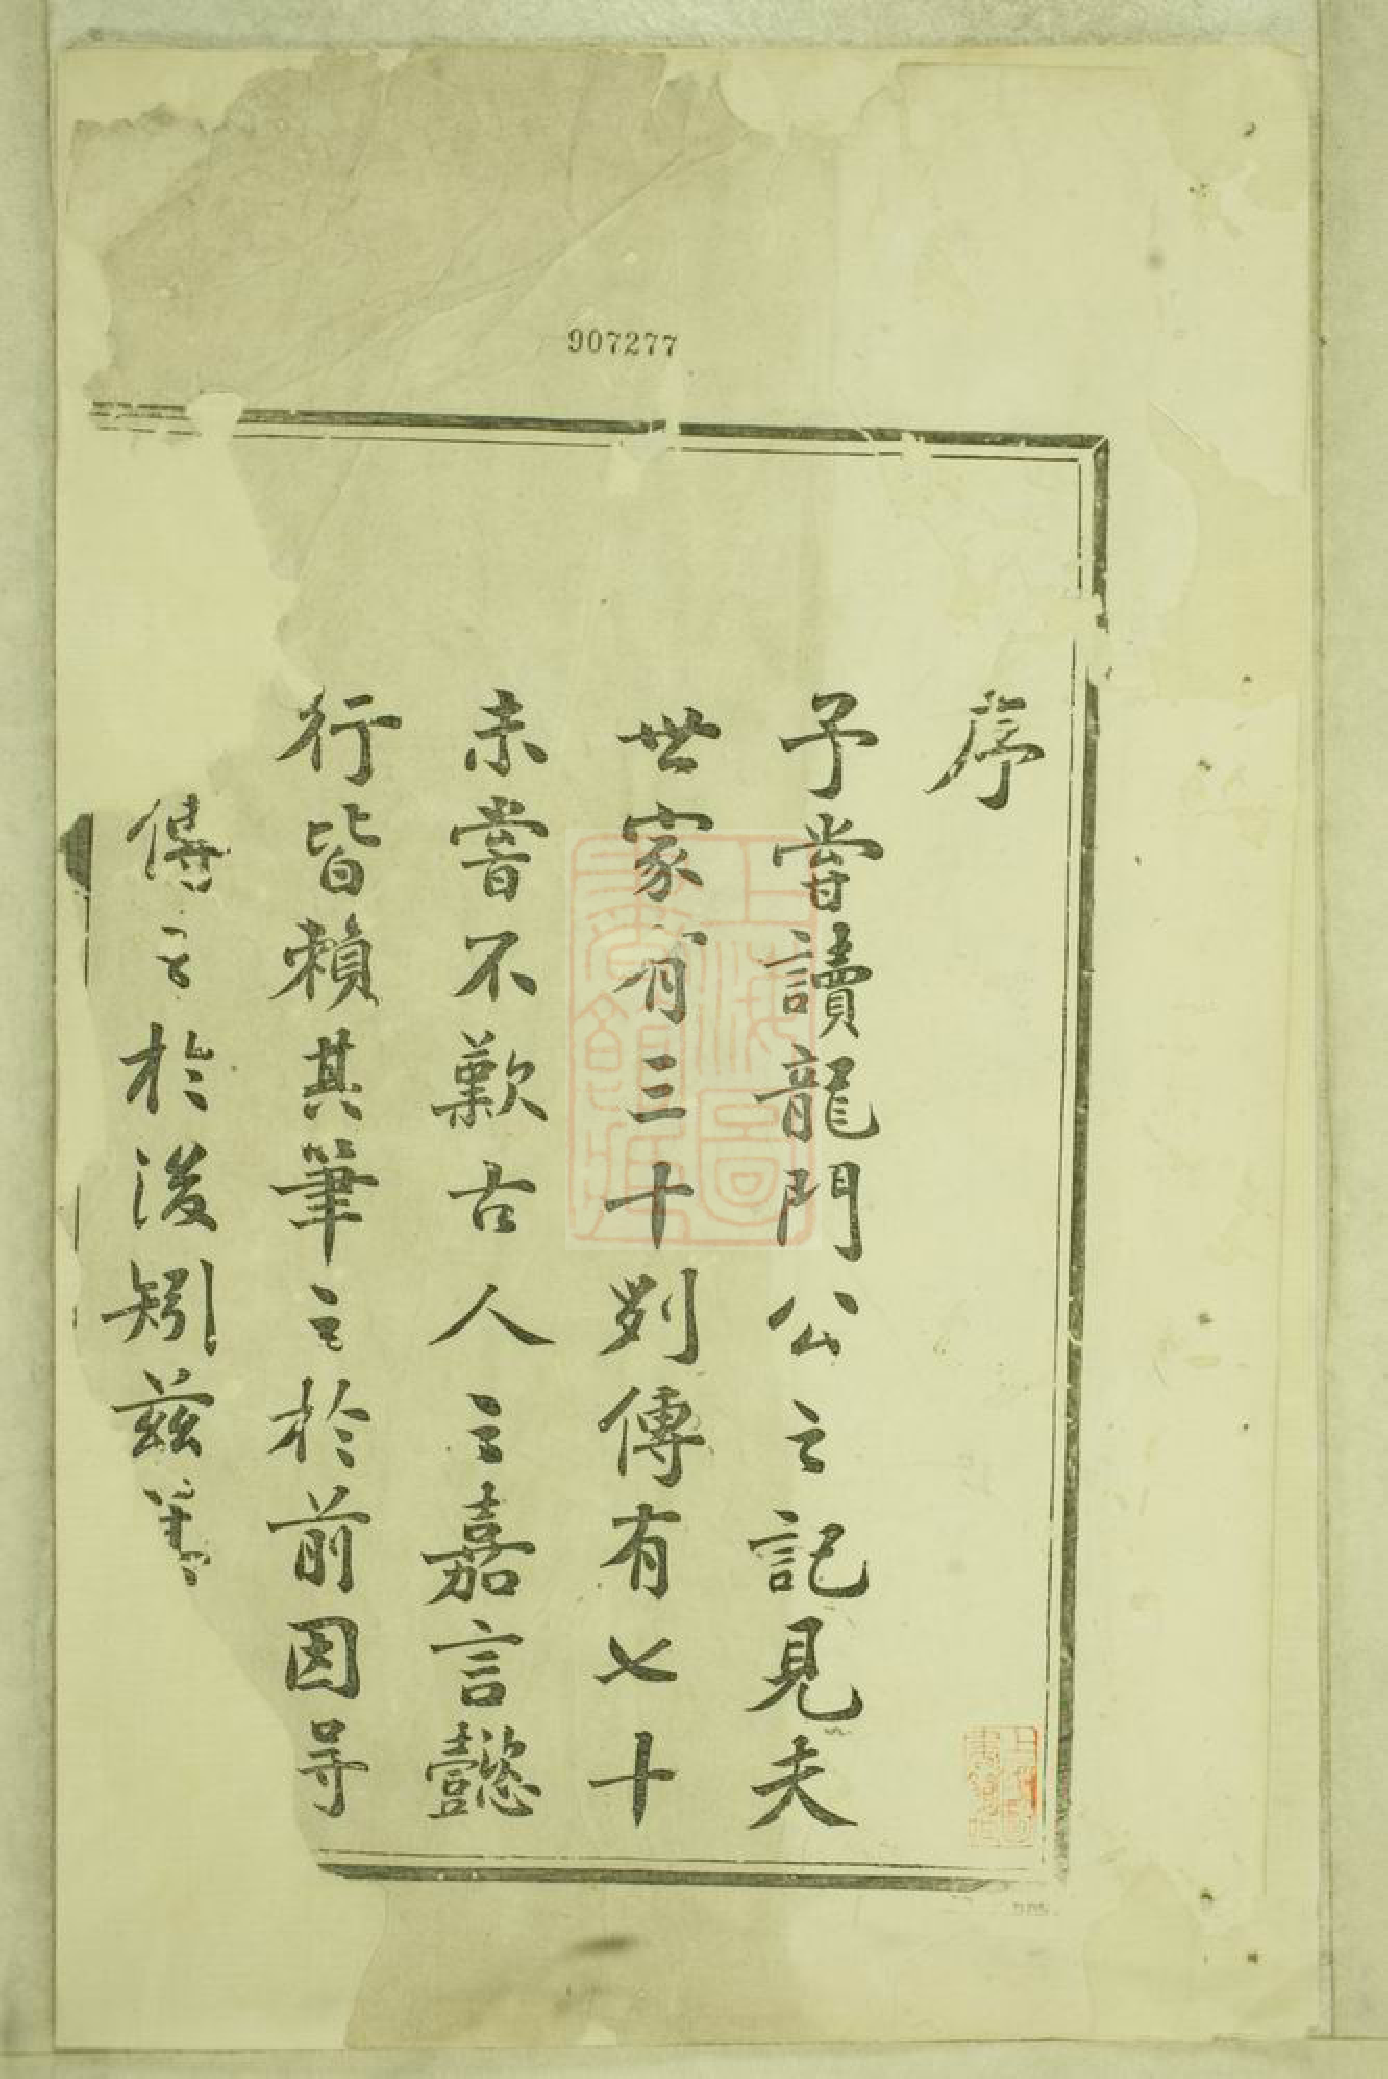 907277
序
予嘗讀龍門公之記見夫
世家有三十列傳有七十
未嘗不歎古人之嘉言懿
行皆賴其筆之於前因得
傳之於後矧茲
上海圖書館藏